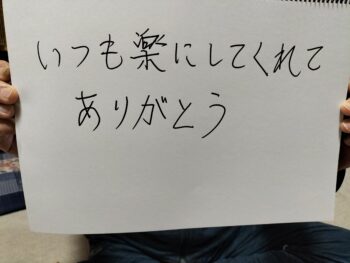 いつも楽にしてくれて
ありがとう